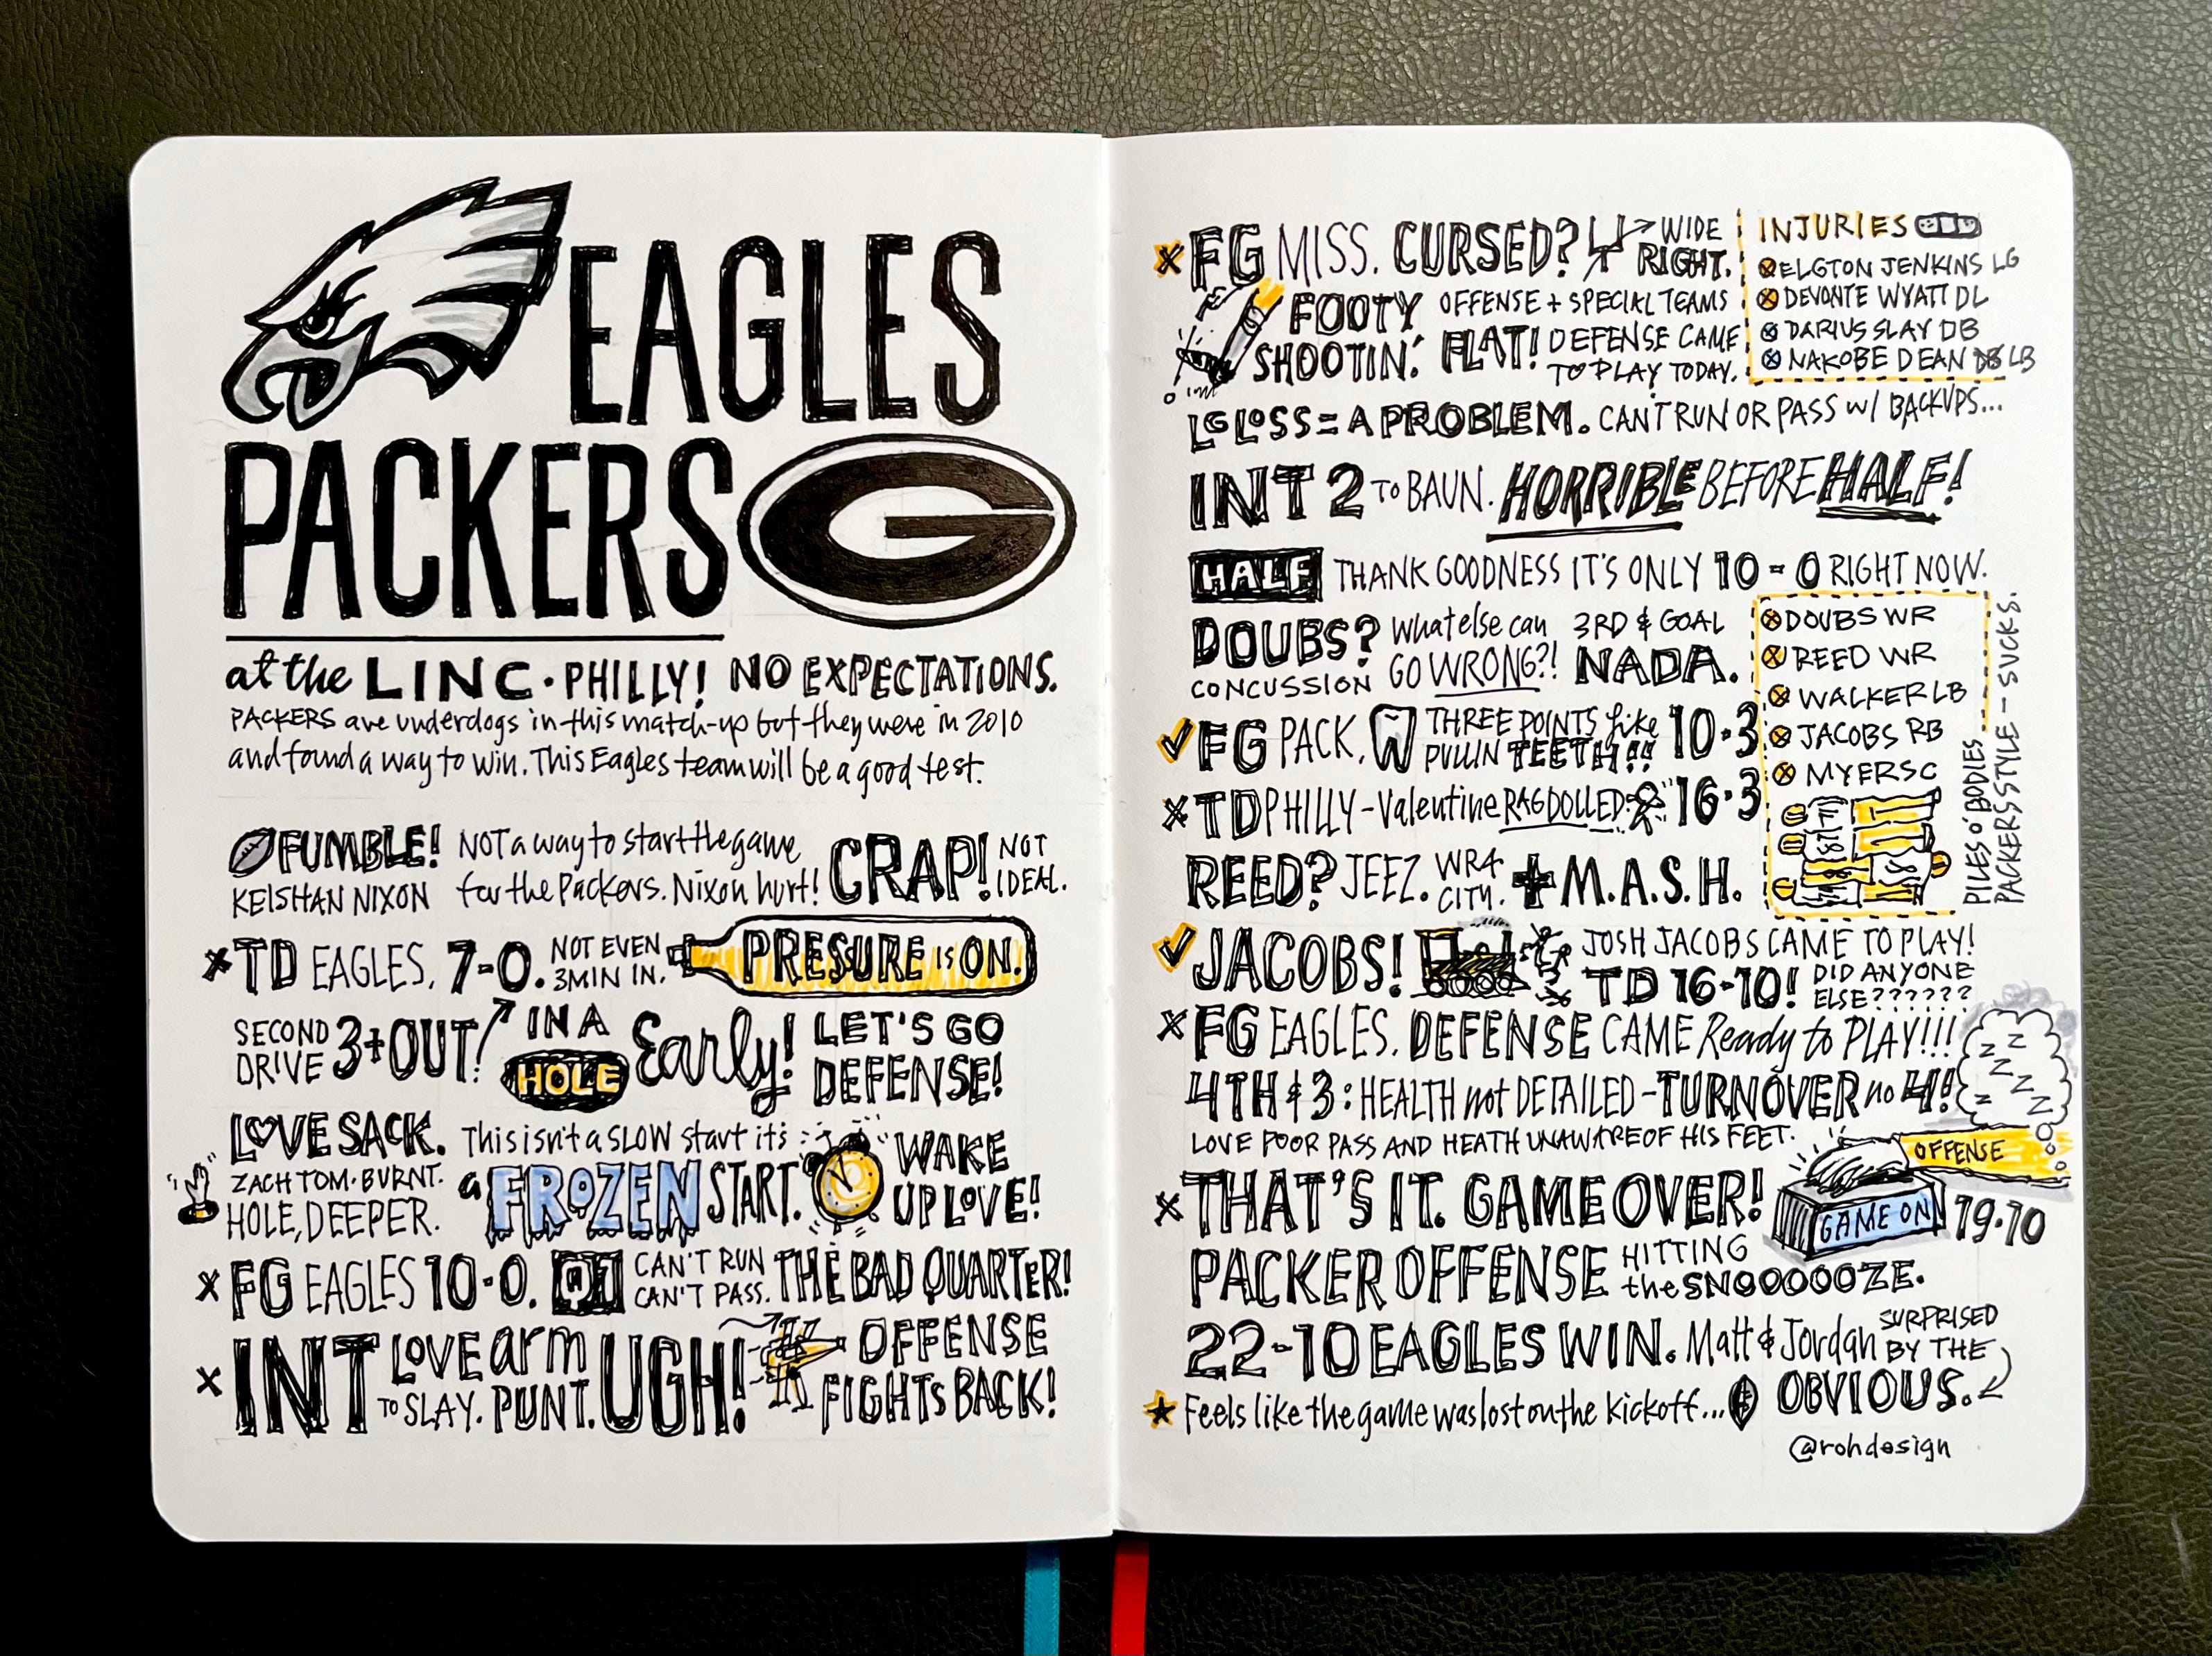 EAGLES
PACKERS G
at the LINC · PHILLY! NO EXPECTATIONS.
PACKERS are underdogs in this match-up but they were in 2010
and found a way to win. This Eagles team will be a good test.
FUMBLE! NOT a way to start the game
KEISHAN NIXON for the Packers. Nixon hurt!
CRAP! NOT IDEAL.
× TD EAGLES, 7-0. NOT EVEN 3 MIN IN.
PRESURE IS ON.
SECOND DRIVE 3+OUT! IN A HOLE Early!
LET'S GO DEFENSE!
LOVE SACK.
ZACH TOM · BURNT.
HOLE, DEEPER.
This isn't a SLOW start it's
a FROZEN START.
WAKE UP LOVE!
× FG EAGLES 10-0. Q1 CAN'T RUN CAN'T PASS. THE BAD QUARTER!
× INT LOVE arm TO SLAY. PUNT. UGH!
OFFENSE FIGHTS BACK!
× FG MISS. CURSED? WIDE RIGHT.
FOOTY SHOOTIN'.
OFFENSE + SPECIAL TEAMS
FLAT! DEFENSE CAME TO PLAY TODAY.
INJURIES
ELGTON JENKINS LG
DEVONTE WYATT DL
DARIUS SLAY DB
NAKOBE DEAN DB LB
LG LOSS = A PROBLEM. CAN'T RUN OR PASS W/ BACKUPS...
INT 2 TO BAUN. HORRIBLE BEFORE HALF!
HALF THANK GOODNESS IT'S ONLY 10-0 RIGHT NOW.
DOUBS? CONCUSSION
What else can GO WRONG?!
3RD & GOAL NADA.
✓ FG PACK. THREE POINTS like PULLIN TEETH!! 10-3
× TD PHILLY - Valentine RAGDOLLED. 16-3
REED? JEEZ. WR4 CITY. + M.A.S.H.
DOUBS WR
REED WR
WALKER LB
JACOBS RB
MYERS C
PILES O' BODIES
PACKERS STYLE - SUCKS.
✓ JACOBS! JOSH JACOBS CAME TO PLAY!
TD 16-10! DID ANYONE ELSE??????
× FG EAGLES. DEFENSE CAME Ready to PLAY!!!
4TH & 3: HEALTH not DETAILED - TURNOVER no 4!!
LOVE POOR PASS AND HEATH UNAWARE OF HIS FEET.
Z Z Z Z Z
OFFENSE
× THAT'S IT. GAME OVER!
GAME ON 19-10
PACKER OFFENSE HITTING the SNOOOOOZE.
22-10 EAGLES WIN. Matt & Jordan SURPRISED BY THE OBVIOUS.
★ Feels like the game was lost on the kickoff...
@rohdesign